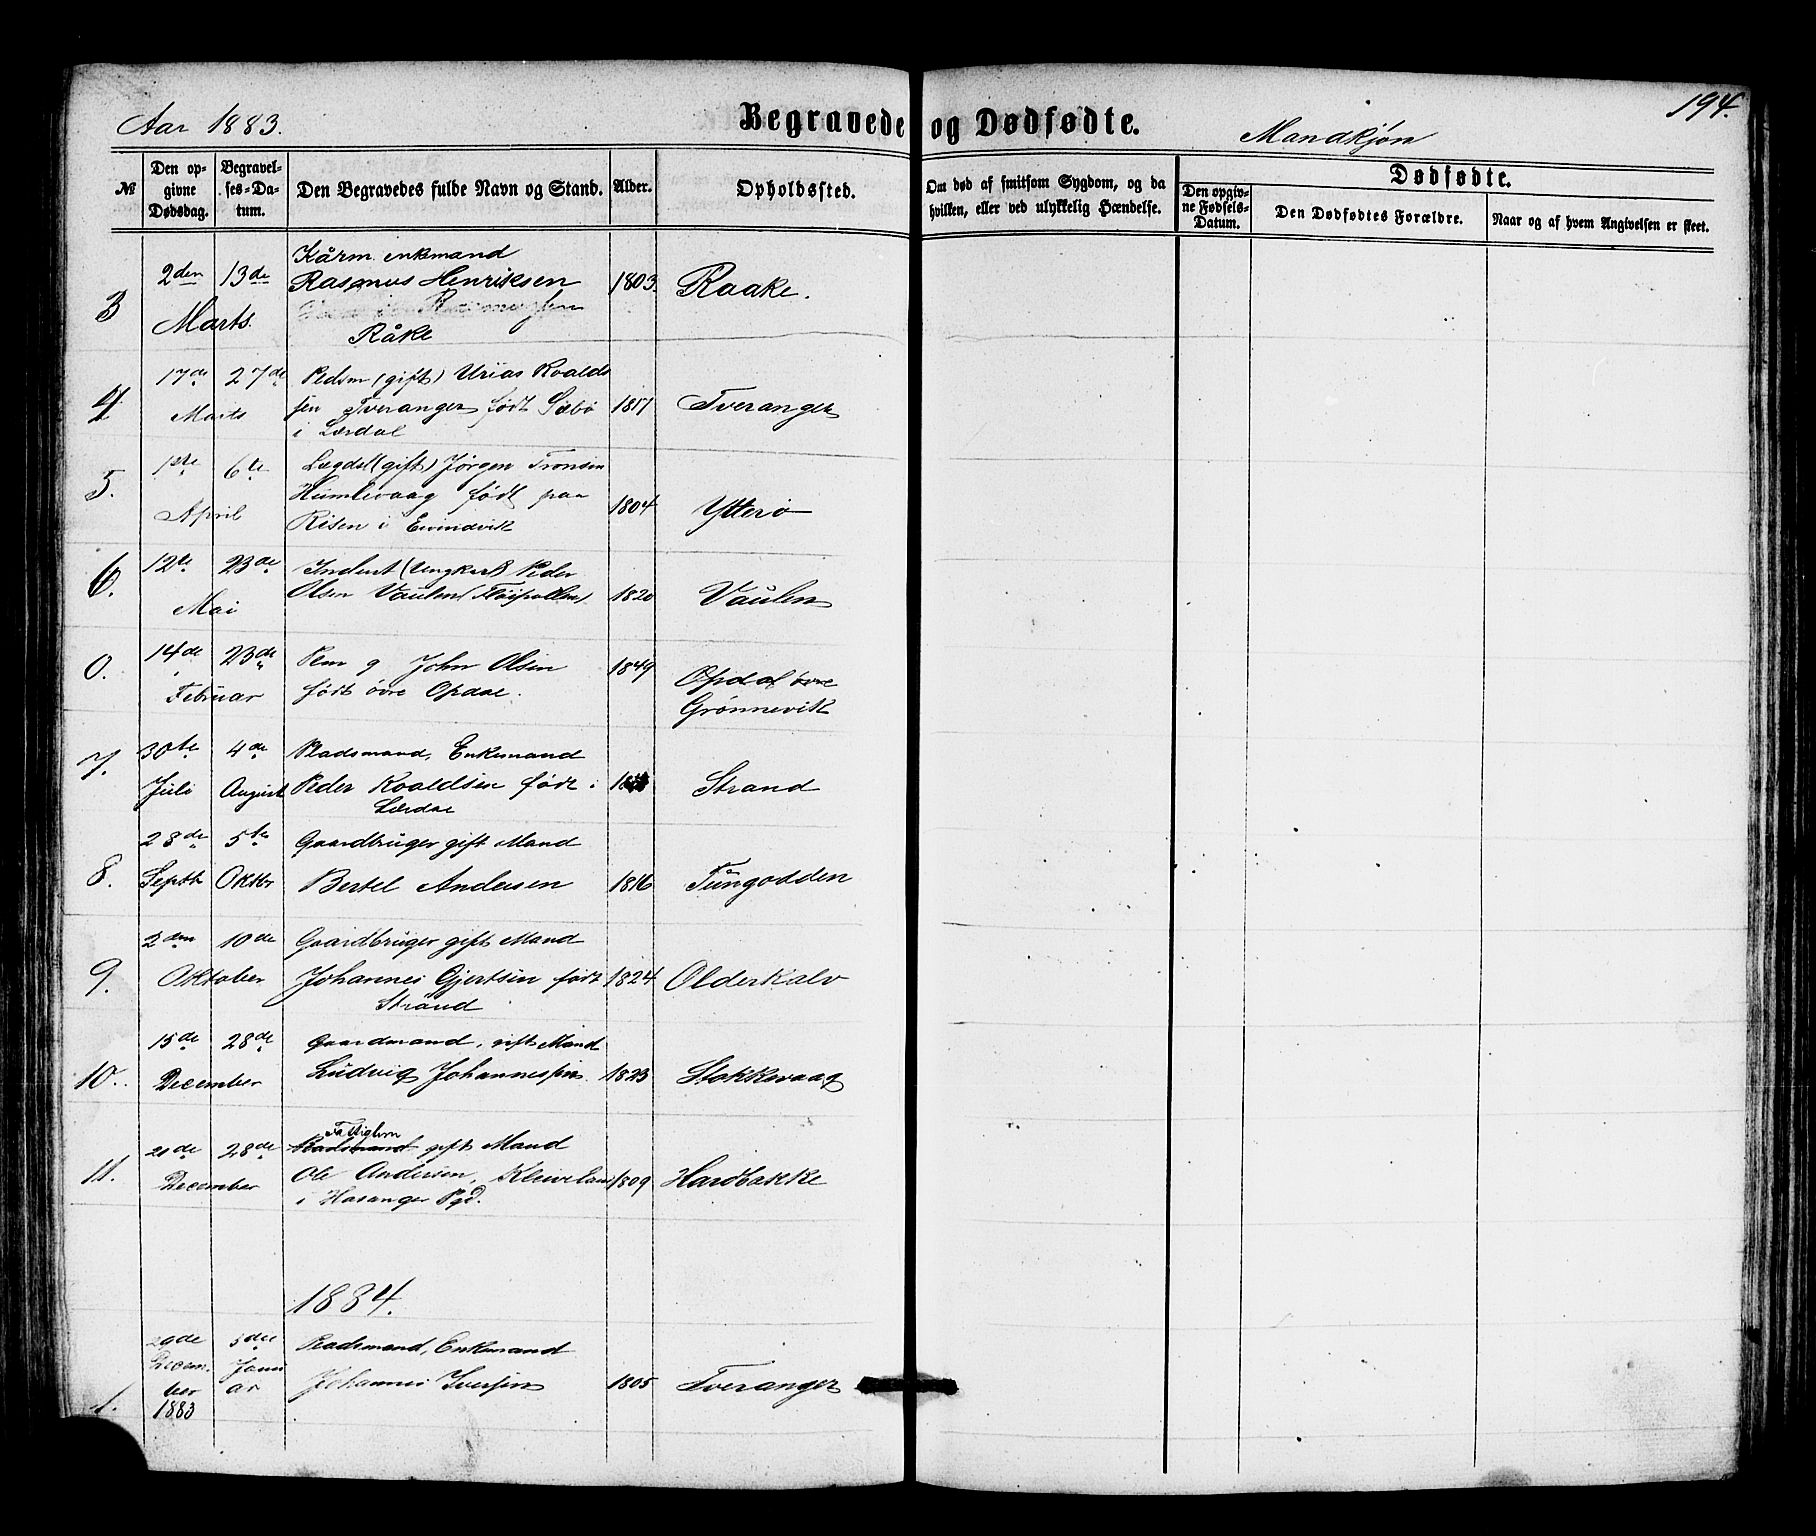 Aar 1883.
Begravede og Dødfødte.
Mandkjøn
194.
№
Den opgivne Dødsdag.
Begravelses-Datum.
Den Begravedes fulde Navn og Stand.
Alder.
Opholdssted.
Om død af smitsom Sygdom, og da hvilken, eller ved ulykkelig Hændelse.
Dødfødte.
Den opgivne Fødsels-Datum.
Den Dødfødtes Forældre.
Naar og af hvem Angivelsen er skeet.
Kårm. enkmand
3 2den 13de Rasmus Henriksen 1803. Raake.
Marts.
Råke
17de 27de Pedsm (gift) Urias Roalds
4 Marts sen Tveranger født Sæbø 1817 Tveranger
i Lærdal
1ste 6te Lægdsl (gift) Jørgen Tronsen
5. April Humlevaag født paa 1804 Ytterø
Risen i Evindvik
12te 23de Inderst (Ungkarl) Peder
6. Mai Olsen Vaulen 1820 Vaulen
14de 23de Pem g John Olsen 1849
0. Februar født øvre Opdal. Opdal øvre
Grønnevik
30te 4de Pladsmand, Enkemand
7. Juli August Peder Roaldsen født i Strand
Lærdal
28de 5te Gaardbruger gift Mand
8. Septb Oktbr Bertel Andersen 1816 Tungodden
2den 10de Gaardbruger gift Mand
9. Oktober Johannes Gjertsen født 1824 Olderkalv
Strand
15de 28de Gaardmand, gift Mand
10. December Ludvig Johannessen 1823 Stokkevaag
Fattiglem
21de 28de Pladsmand gift Mand
11. December Ole Andersen, Kleiveland 1809 Hardbakke
i Hasanger Pgd.
1884.
29de 5de Pladsmand, Enkemand
Decem- Janu
1. ber ar Johannes Iversen 1805 Tveranger
1883